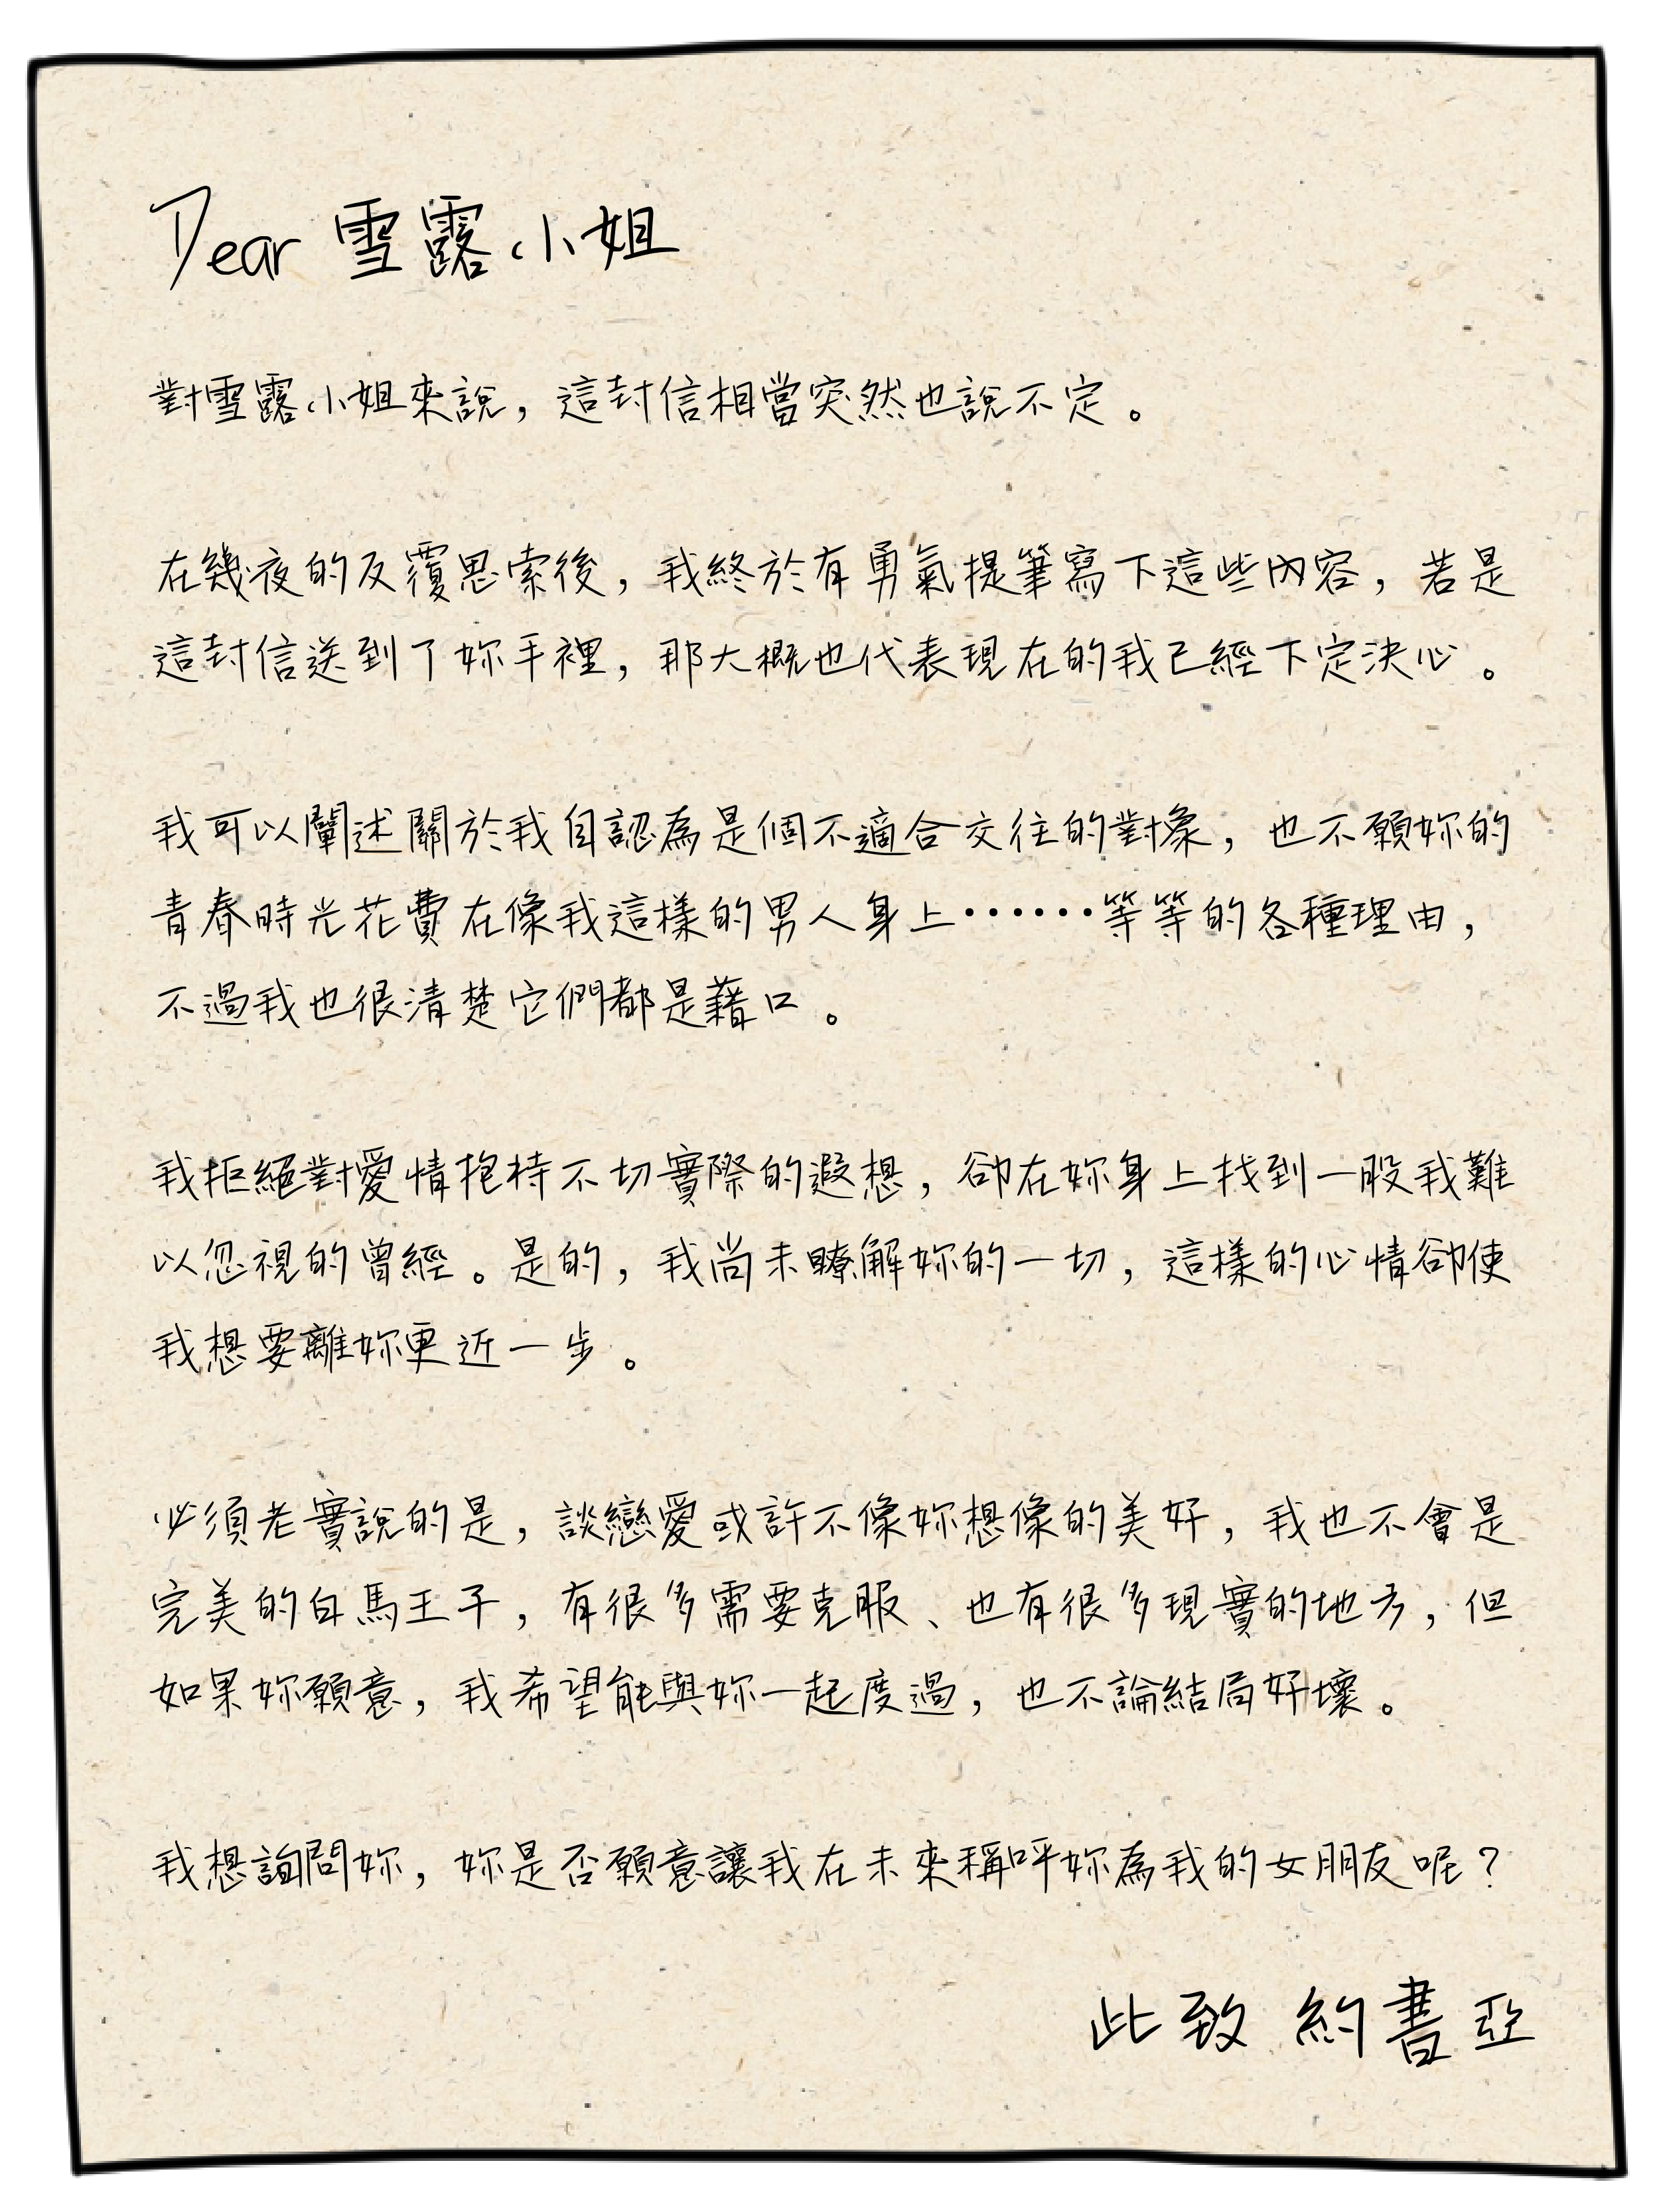 Dear 雪露小姐
對雪露小姐來說，這封信相當突然也說不定。
在幾夜的反覆思索後，我終於有勇氣提筆寫下這些內容，若是
這封信送到了妳手裡，那大概也代表現在的我已經下定決心。
我可以闡述關於我自認為是個不適合交往的對象，也不願妳的
青春時光花費在像我這樣的男人身上⋯⋯等等的各種理由，
不過我也很清楚它們都是藉口。
我拒絕對愛情抱持不切實際的遐想，卻在妳身上找到一股我難
以忽視的曾經。是的，我尚未瞭解妳的一切，這樣的心情卻使
我想要離妳更近一步。
必須老實說的是，談戀愛或許不像妳想像的美好，我也不會是
完美的白馬王子，有很多需要克服、也有很多現實的地方，但
如果妳願意，我希望能與妳一起度過，也不論結局好壞。
我想詢問妳，妳是否願意讓我在未來稱呼妳為我的女朋友呢？
此致 約書亞